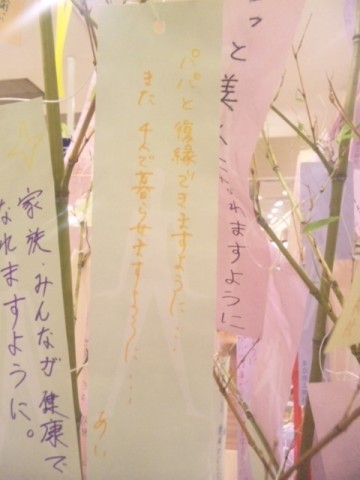 パパと復縁できますように・・・
また 4人で暮らせますように・・・
あい
家族・みんなが健康で
なれますように。
っと美しくなれますように